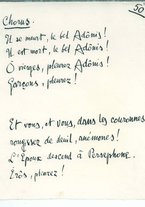 50
Chorus.
Il se meurt, le bel Adônis!
Il est mort, le bel Adônis!
Ô vierges, pleurez Adônis!
Garçons, pleurez!
Et vous, et vous, dans les couronnes
rougissez de deuil, anémones!
L'Époux descend à Perséphone.
Érôs, pleurez!